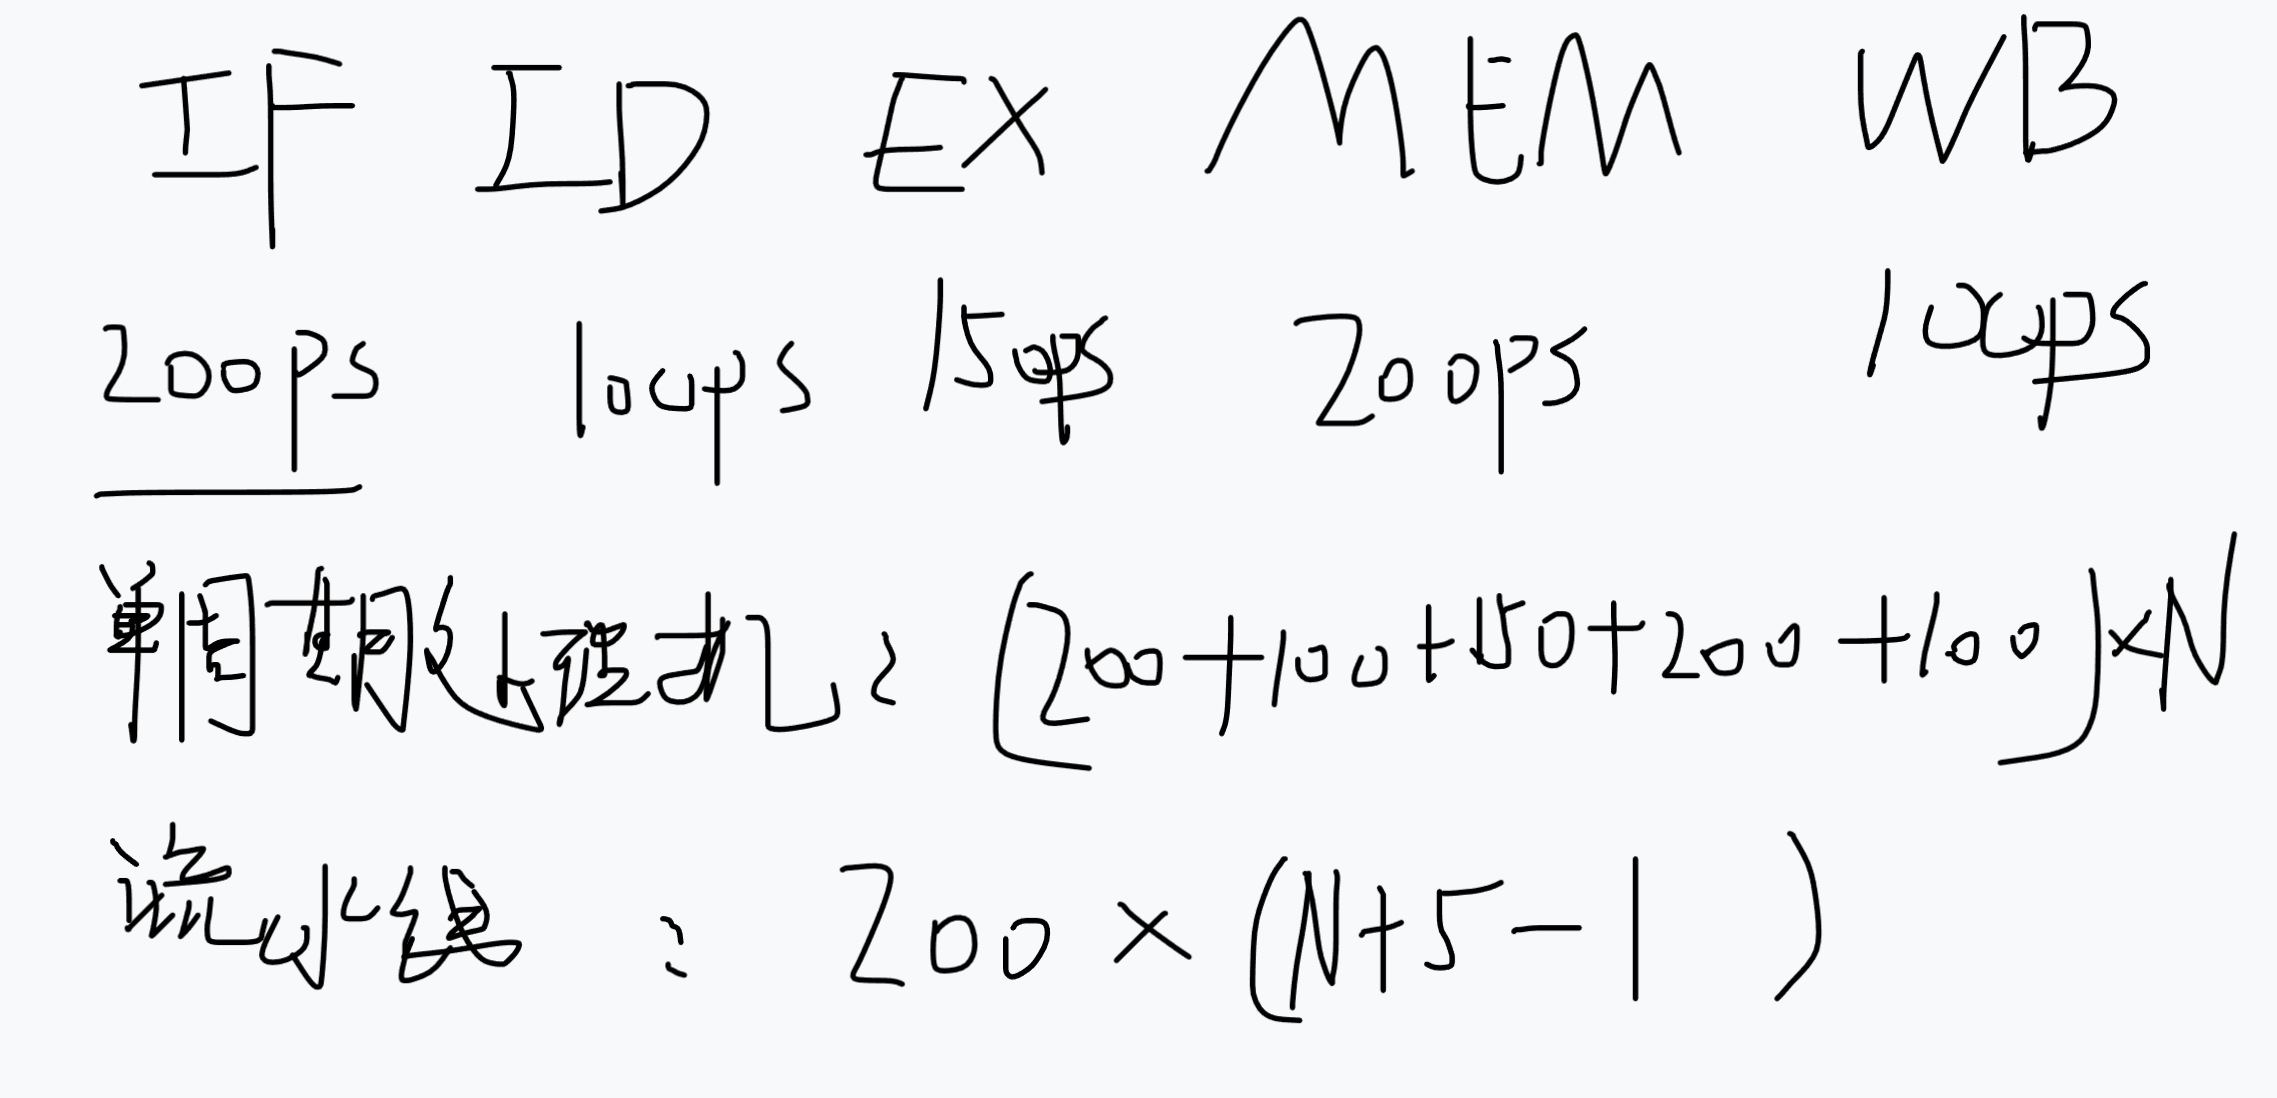 IF ID EX MEM WB
200ps 100ps 150ps 200ps 100ps
單週期處理機: (200+100+150+200+100)×N
流水線: 200×(N+5-1)